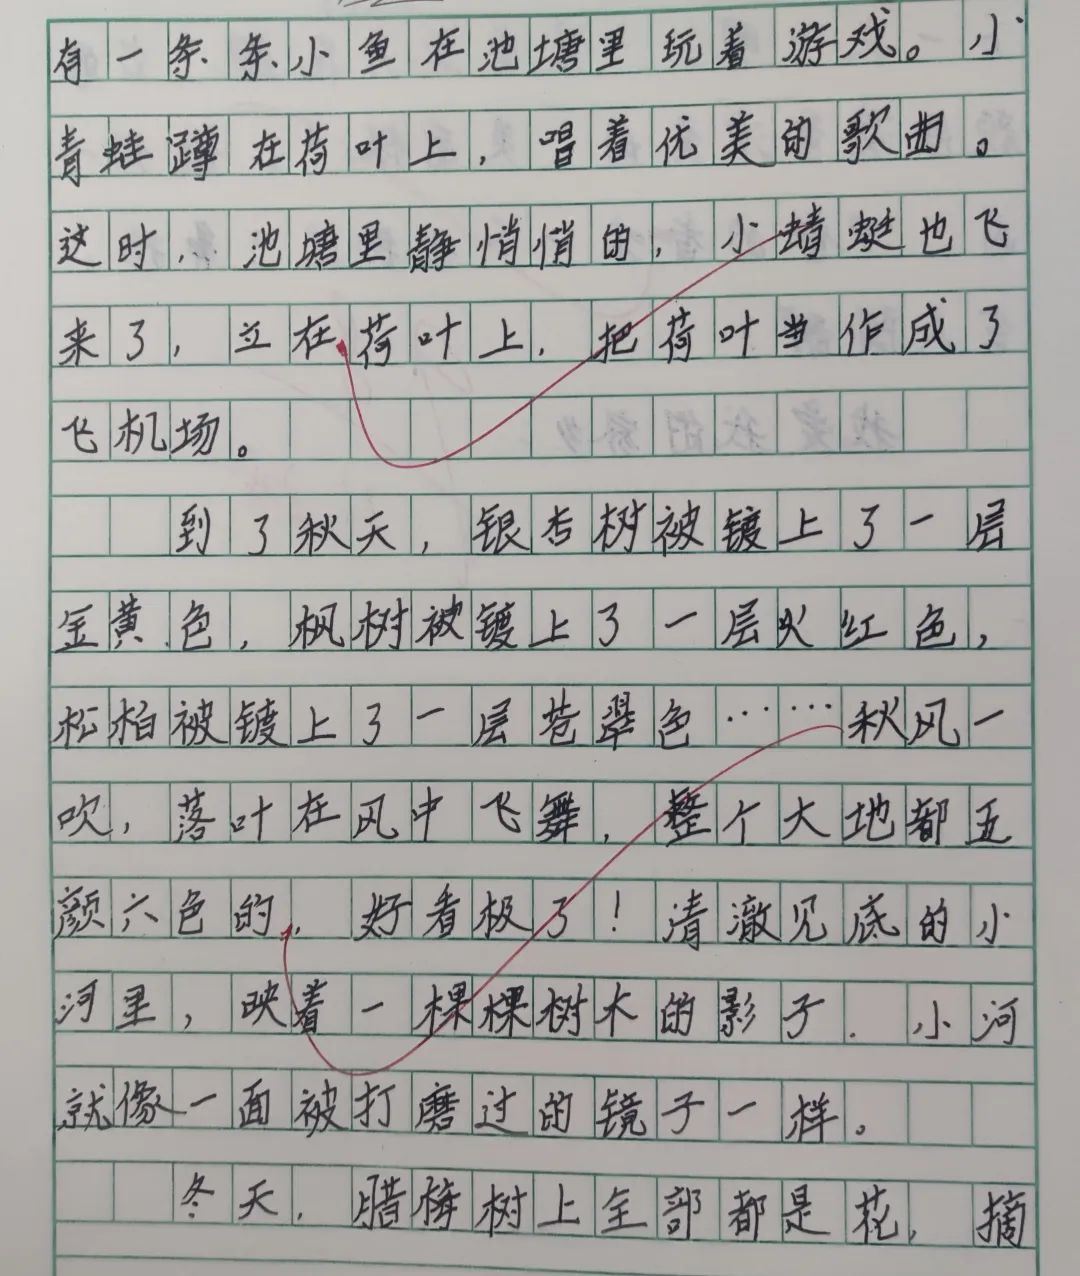 有一条条小鱼在池塘里玩着游戏。小
青蛙蹲在荷叶上，唱着优美的歌曲。
这时，池塘里静悄悄的，小蜻蜓也飞
来了，立在荷叶上，把荷叶当作成了
飞机场。
到了秋天，银杏树被镀上了一层
金黄色，枫树被镀上了一层火红色，
松柏被镀上了一层苍翠色……秋风一
吹，落叶在风中飞舞，整个大地都五
颜六色的，好看极了！清澈见底的小
河里，映着一棵棵树木的影子．小河
就像一面被打磨过的镜子一样。
冬天，腊梅树上全部都是花，摘